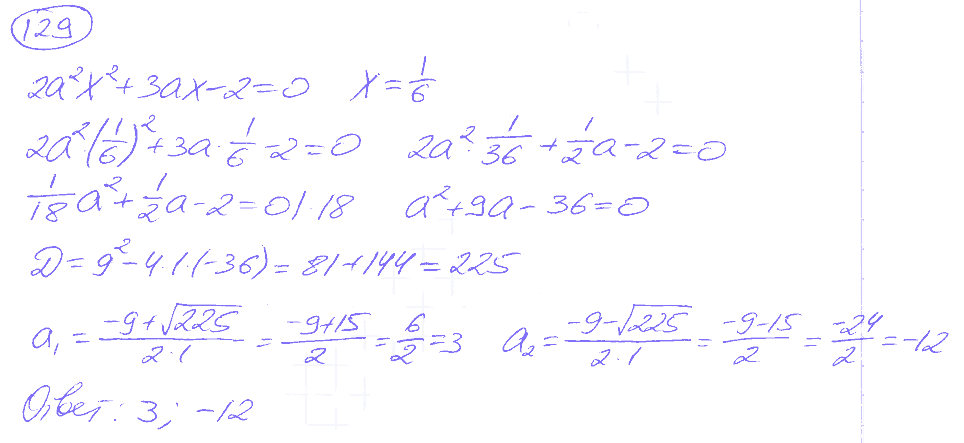 129
2a²x² + 3ax − 2 = 0 x = 1/6
2a²(1/6)² + 3a · 1/6 − 2 = 0 2a² · 1/36 + 1/2 a − 2 = 0
1/18 a² + 1/2 a − 2 = 0 | · 18 a² + 9a − 36 = 0
D = 9² − 4 · 1 · (−36) = 81 + 144 = 225
a₁ = (−9 + √225)/(2 · 1) = (−9 + 15)/2 = 6/2 = 3 a₂ = (−9 − √225)/(2 · 1) = (−9 − 15)/2 = −24/2 = −12
Ответ: 3; −12